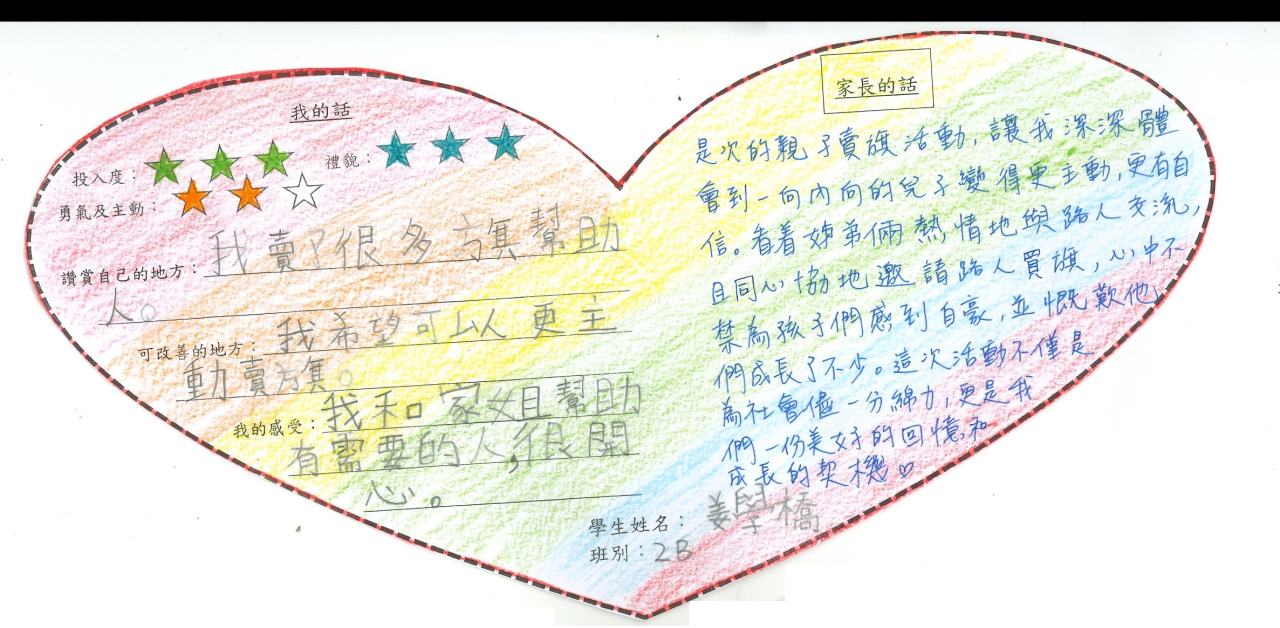 我的話
投入度：
禮貌：
勇氣及主動：
讚賞自己的地方：我賣了很多旗幫助
人。
可改善的地方：我希望可以更主
動賣旗。
我的感受：我和家姐幫助
有需要的人,很開
心。
家長的話
是次的親子賣旗活動,讓我深深體
會到一向內向的兒子變得更主動,更有自
信。看着姊弟倆熱情地與路人交流,
且同心協地邀請路人買旗,心中不
禁為孩子們感到自豪,並慨歎他
們成長了不少。這次活動不僅是
為社會儘一分綿力,更是我
們一份美好的回憶和
成長的契機♡
學生姓名：姜學橋
班別：2B